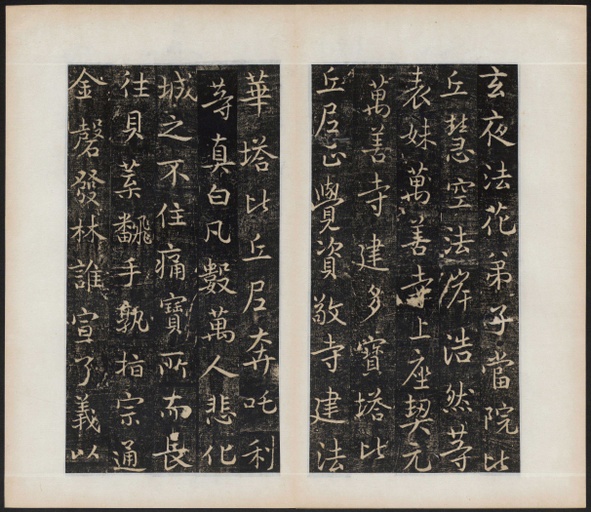 玄夜法花弟子當院比
丘慧空法岸浩然等
表妹萬善寺上座契元
萬善寺建多寶塔比
丘尼正覺資敬寺建法
華塔比丘尼奔吒利
等真白凡數萬人悲化
城之不住痛寶所而長
往貝葉飜手孰指宗通
金磬發林誰宣了義以